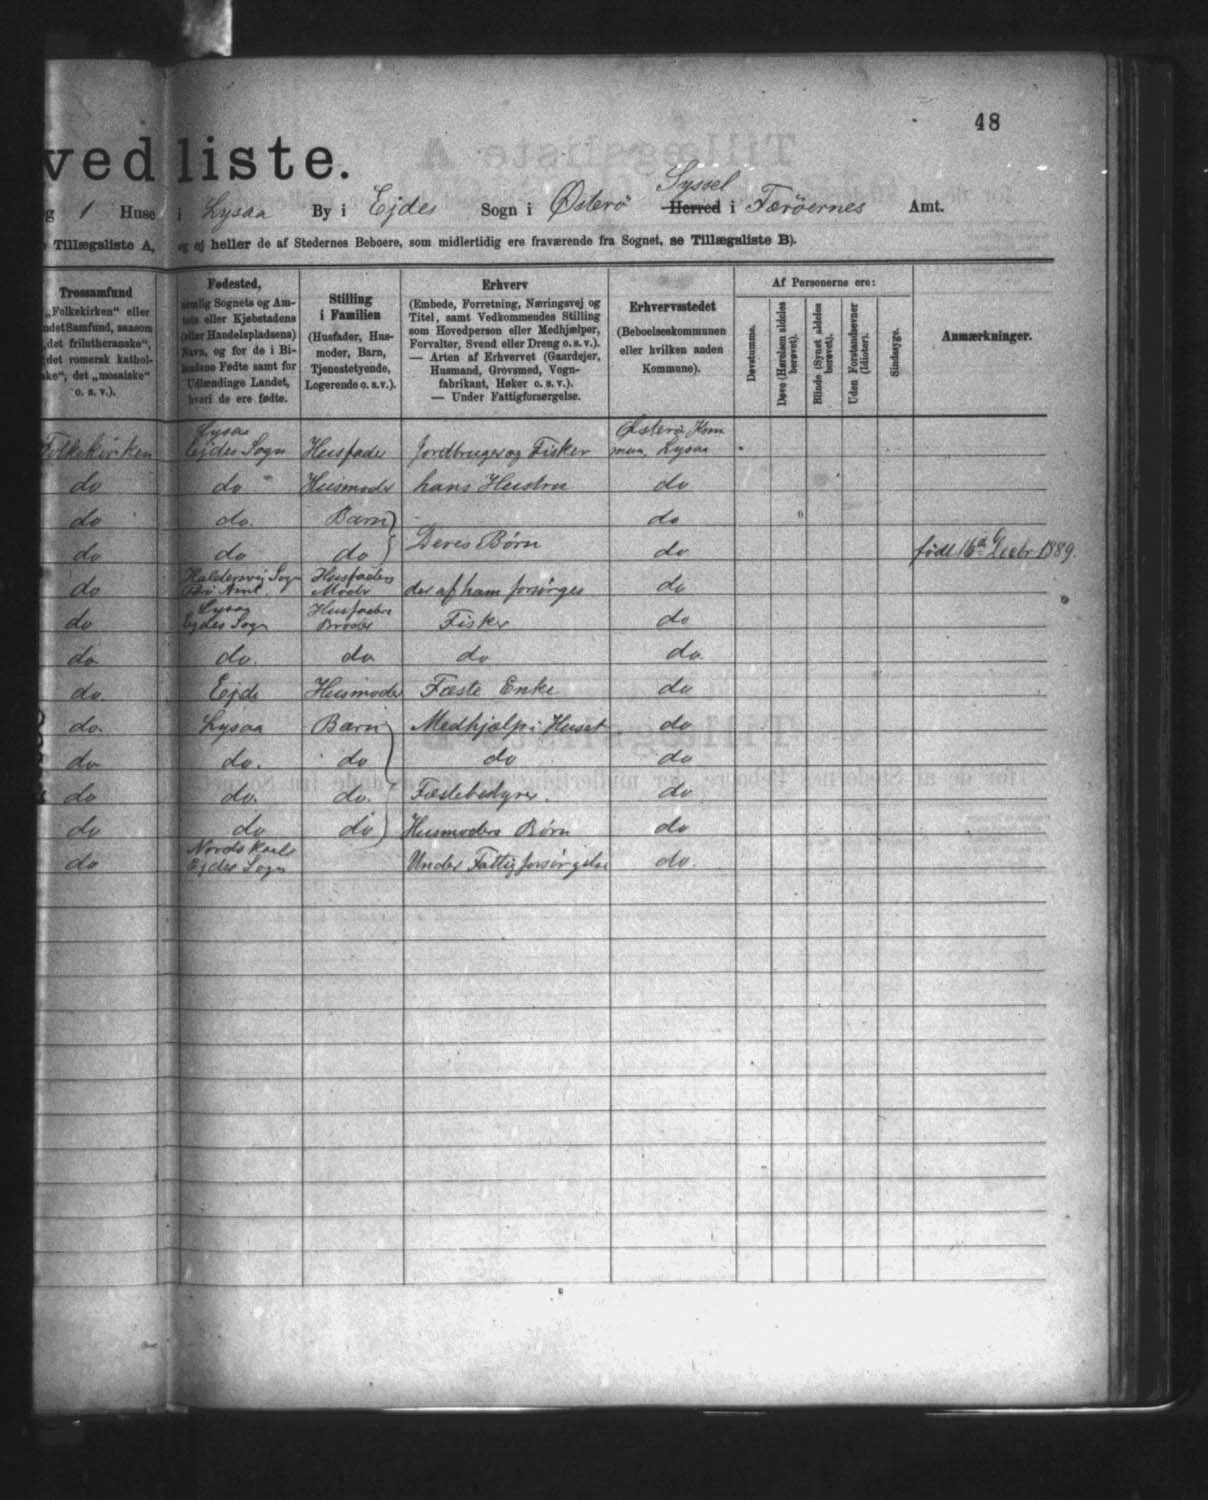 48
vedliste.
g 1 Huse i Lysaa By i Ejdes Sogn i Østerø Syssel Herred i Færøernes Amt.
Tillægsliste A, og ej heller de af Stedernes Beboere, som midlertidig ere fraværende fra Sognet, se Tillægsliste B).
Trossamfund
„Folkekirken“ eller
ndet Samfund, saasom
„det frilutheranske“,
det romersk kathol-
ske“, det „mosaiske“
o. s. v.).
Fødested,
nemlig Sognets og Am-
tets eller Kjøbstadens
(eller Handelspladsens)
Navn, og for de i Bi-
landene Fødte samt for
Udlændinge Landet,
hvori de ere fødte.
Stilling
i Familien
(Husfader, Hus-
moder, Barn,
Tjenestetyende,
Logerende o. s. v.).
Erhverv
(Embede, Forretning, Næringsvej og
Titel, samt Vedkommendes Stilling
som Hovedperson eller Medhjælper,
Forvalter, Svend eller Dreng o. s. v.).
— Arten af Erhvervet (Gaardejer,
Husmand, Grovsmed, Vogn-
fabrikant, Høker o. s. v.).
— Under Fattigforsørgelse.
Erhvervsstedet
(Beboelseskommunen
eller hvilken anden
Kommune).
Af Personerne ere:
Døvstumme.
Døve (Hørelsen aldeles
berøvet).
Blinde (Synet aldeles
berøvet).
Uden Forstandsevner
(Idioter).
Sindssyge.
Anmærkninger.
Folkekirken Lysaa Ejdes Sogn Husfader Jordbruger og Fisker Østerø Kom mun, Lysaa
do do Husmoder hans Hustru do
do do. Barn do
do do do Deres Børn do født 16 1889.
do Haldersvig Sogn Amt. Husfaders Moder der af ham forsørges do
do Lysaa Ejdes Sogn Husfaders Broder Fisker do
do do. do do do.
do. Ejde Husmoder Fæste Enke do
do. Lysaa Barn Medhjælp i Huset do
do do. do do do
do do. do. Fæstebestyrer. do
do do do Husmoders Børn do
do Ejdes Sogn Under Fattigforsørgelse do.